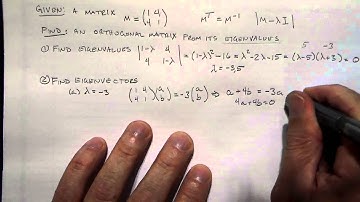 GIVEN: A MATRIX M = (1 4
4 1) Mᵀ = M⁻¹ |M - λI|
FIND: AN ORTHOGONAL MATRIX FROM ITS EIGENVALUES
5 -3
① FIND EIGENVALUES |1-λ 4
4 1-λ| = (1-λ)² - 16 = λ² - 2λ - 15 = (λ-5)(λ+3) = 0
λ = -3, 5
② FIND EIGENVECTORS
(a) λ = -3 (1 4
4 1)(a
b) = -3(a
b) ⇒ a + 4b = -3a
4a + 4b = 0